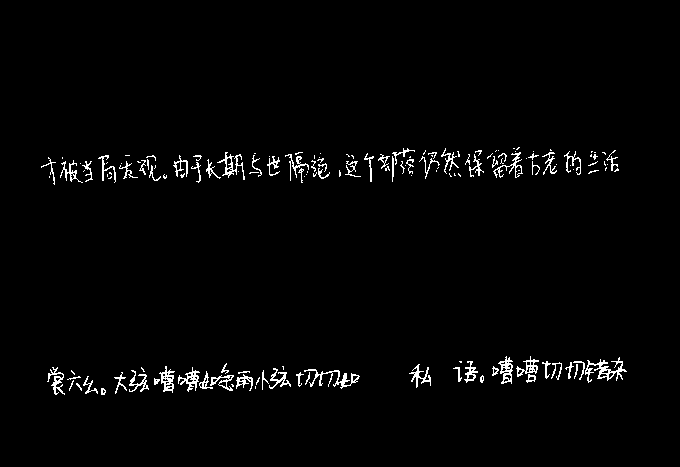 才被当局发现。由于长期与世隔绝,这个部落仍然保留着古老的生活
裳六幺。大弦嘈嘈如急雨小弦切切如 私 语。嘈嘈切切错杂